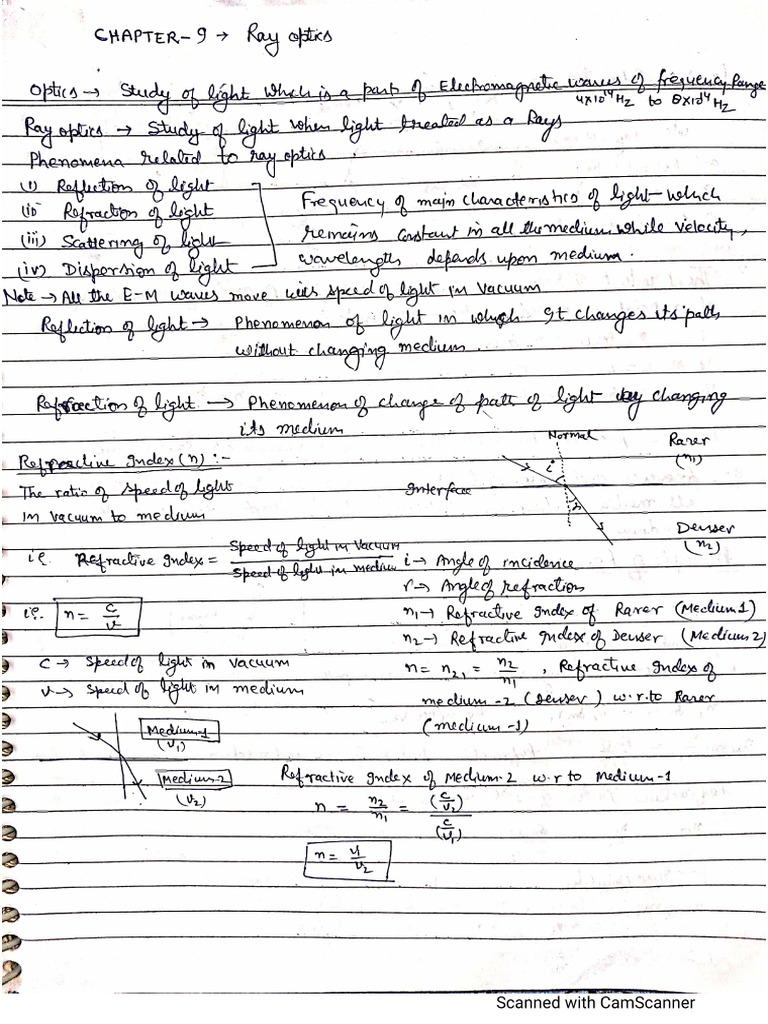 CHAPTER-9 → Ray optics
Optics → Study of light which is a part of Electromagnetic waves of frequency Range
4×10¹⁴Hz to 8×10¹⁴Hz
Ray optics → Study of light when light treated as a Rays
Phenomena related to ray optics.
(i) Reflection of light
(ii) Refraction of light
(iii) Scattering of light
(iv) Dispersion of light
Frequency of main characteristics of light which
remains constant in all the medium while velocity,
wavelength depends upon medium.
Note → All the E-M waves move with speed of light in vacuum
Reflection of light → Phenomenon of light in which It changes its path
without changing medium.
Refraction of light → Phenomenon of change of path of light by changing
its medium
Refractive Index (n) :-
The ratio of speed of light
in vacuum to medium
Normal
Rarer
(n₁)
i
Interface
r
Denser
(n₂)
ie. Refractive Index = Speed of light in vacuum / Speed of light in medium
i → Angle of incidence
r → Angle of refraction
ie. n = c/v
n₁ → Refractive Index of Rarer (Medium 1)
n₂ → Refractive Index of Denser (Medium 2)
c → speed of light in vacuum
v → speed of light in medium
n = n₂₁ = n₂/n₁, Refractive Index of
medium-2 (Denser) w.r.to Rarer
(medium-1)
Medium-1
(v₁)
Medium-2
(v₂)
Refractive Index of Medium-2 w.r to Medium-1
n = n₂/n₁ = (c/v₁)/(c/v₁)
n = v₁/v₂
Scanned with CamScanner